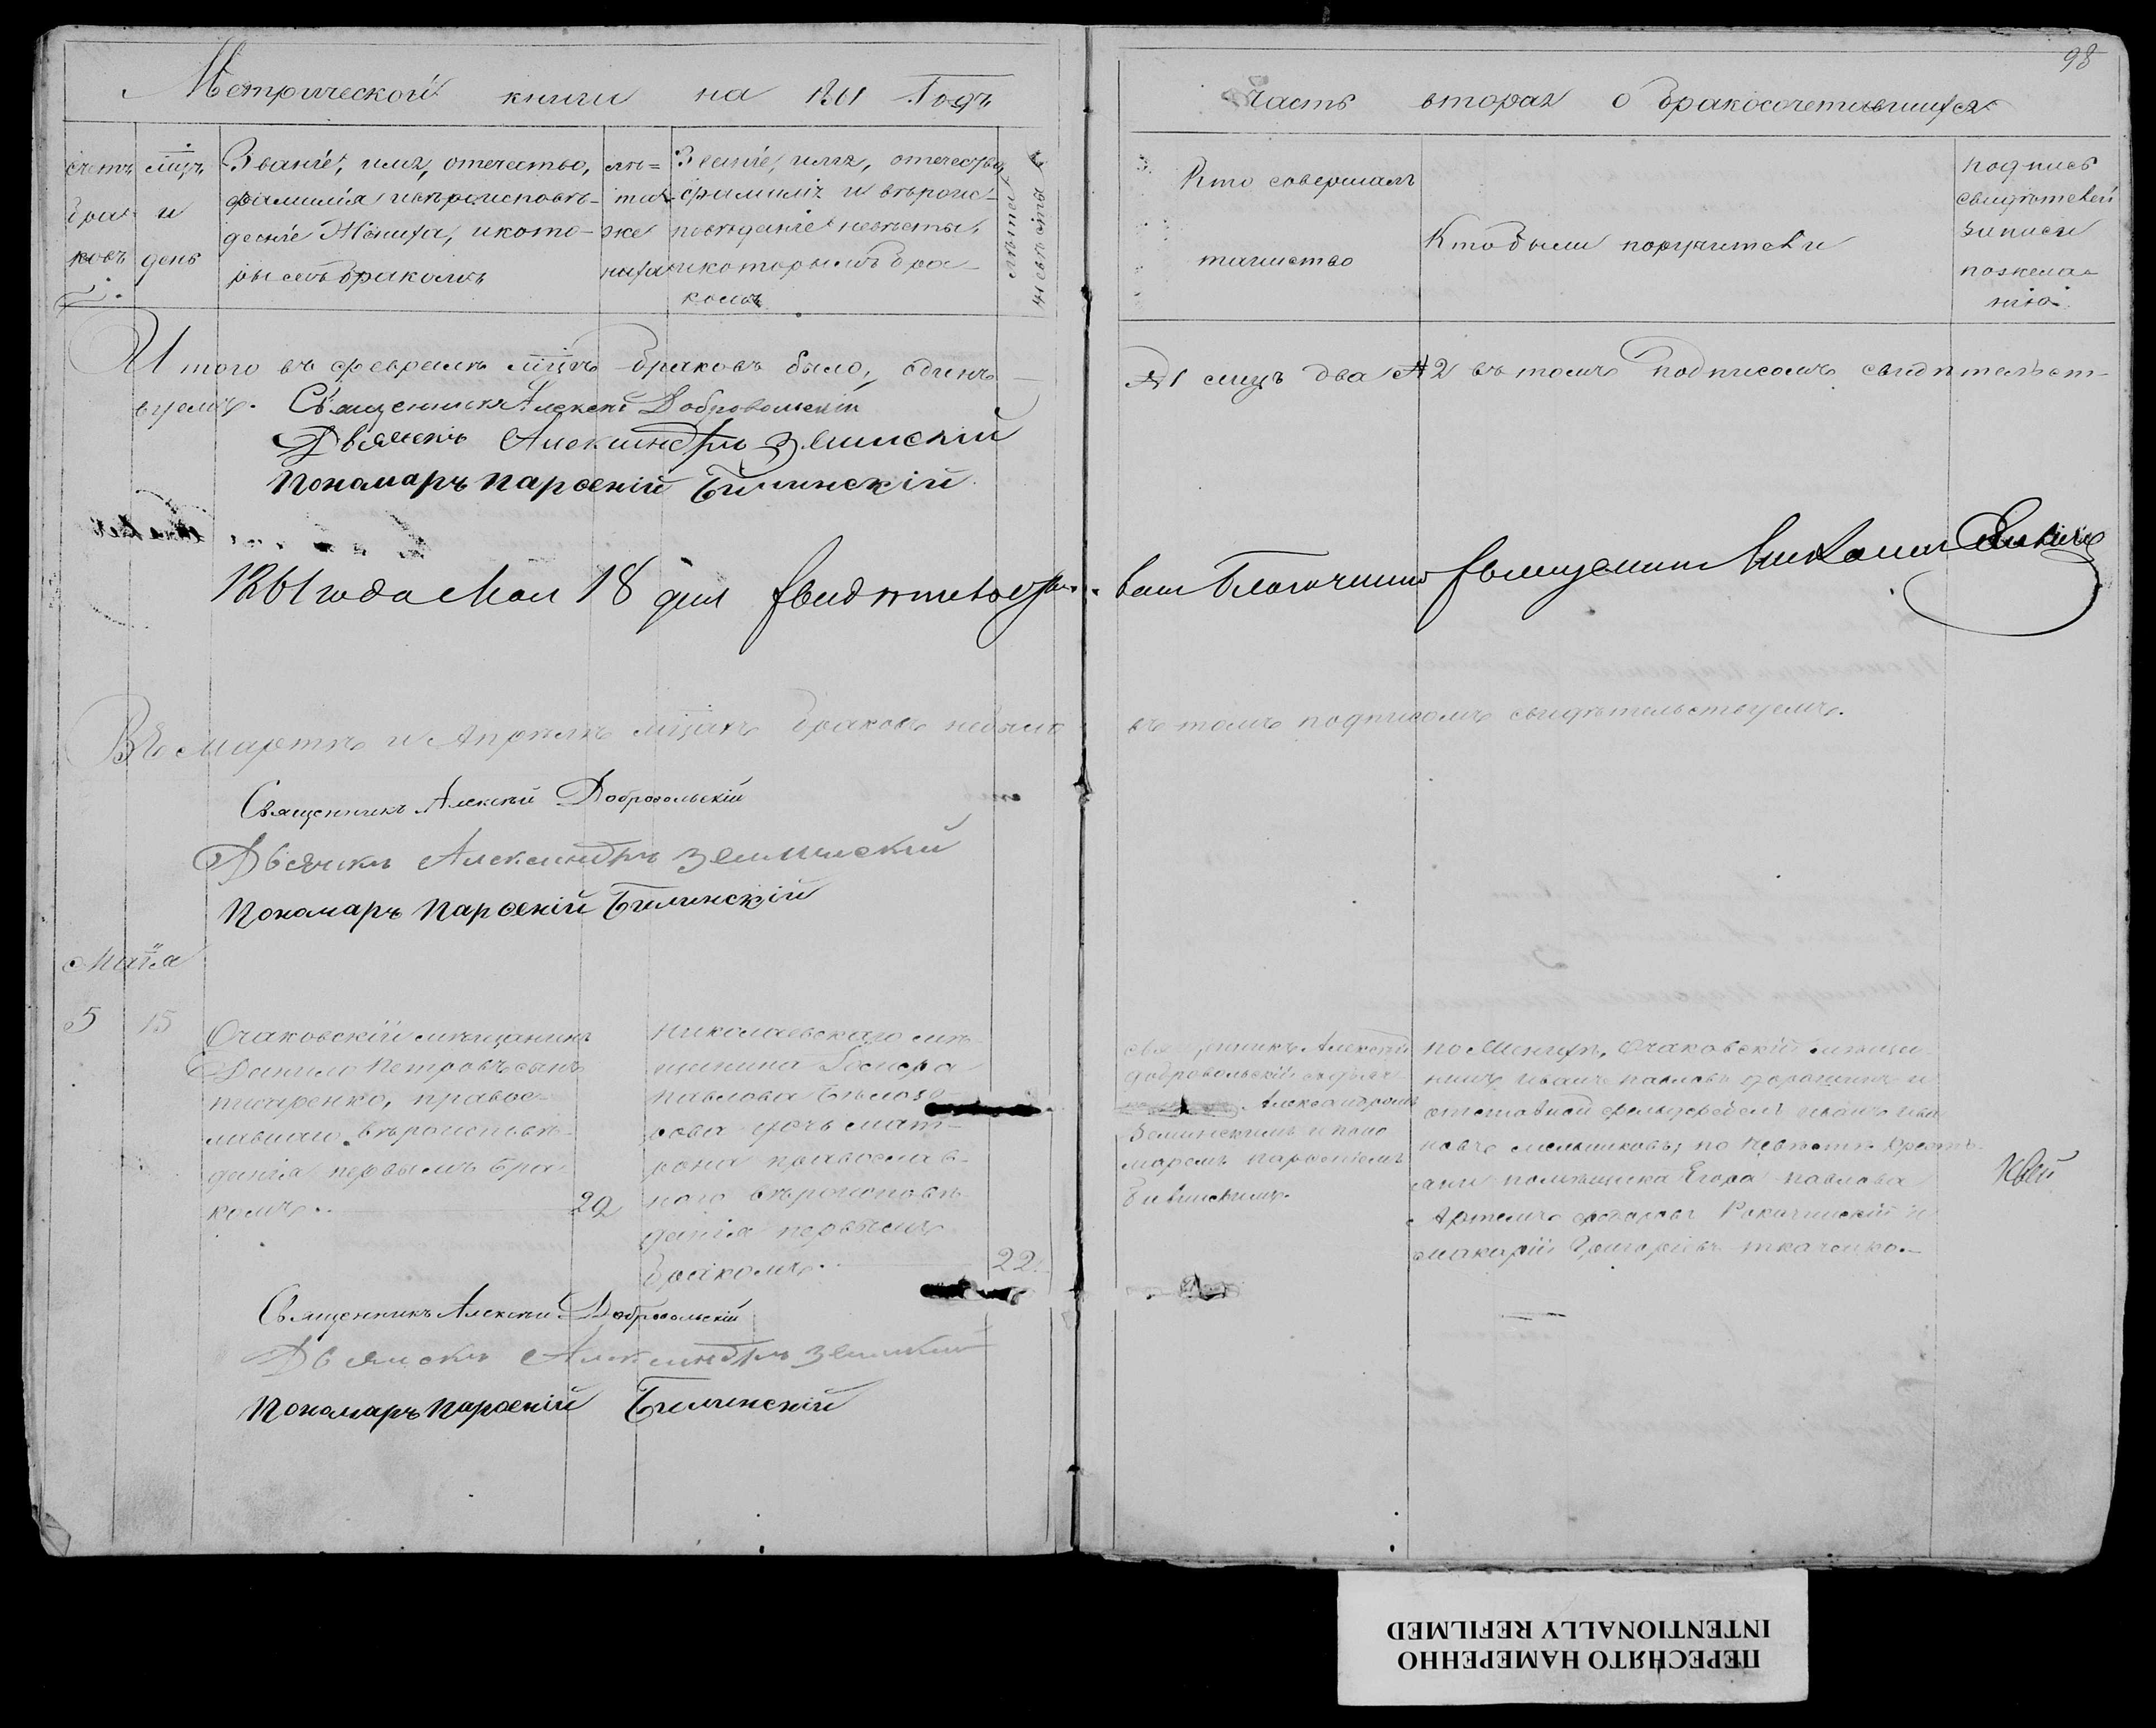 98
Метрической книги на 1861 Годъ
Часть вторая о бракосочетавшихся
счетъ браковъ
мцъ и день
Званіе, имя, отечество,
фамилія ивѣроисповѣ-
деніе Жениха, икото-
рымъ бракомъ
лѣ=
та
же
ниха
Званіе, имя, отечество,
фамилія и вѣроис-
повѣданіе невѣсты,
и которымъ бра-
комъ
лѣта невѣсты
Кто совершалъ
таинство
Кто были поручители
подпись
свидѣтелей
записи
пожела-
нію
Итого въ февралѣ мцѣ браковъ было, одинъ
№1 лицъ два №2 въ томъ подписомъ свидѣтельст-
вуемъ. Священникъ Алексѣй Добровольскій
Дьячекъ Александръ Зелинскій
Пономаръ Парѳеній Билинскій
1861 года Мая 18 дня свидѣтельство-
валъ Благочинный Священникъ
Въ Мартѣ и Апрѣлѣ мцахъ браковъ небыло
въ томъ подписомъ свидѣтельствуемъ.
Священникъ Алексѣй Добровольскій
Дьячекъ Александръ Зелинскій
Пономаръ Парѳеній Билинскій
Маія
5 15
Очаковскій мѣщанинъ
Данило Петровъ сынъ
писаренко, правос-
лавнаго вѣроисповѣ-
данія первымъ бра-
комъ. 29
николаевскаго мѣ-
щанина
павлова Бѣлозо
рова дочь мат-
рона православ-
ного вѣроисповѣ-
данія первымъ
бракомъ. 22.
священникъ Алексѣй
добровольскій съ дьяч
Александромъ
Зелинскимъ и поно
маремъ парѳеніемъ
Билинскимъ.
по Женихѣ, Очаковскій мѣщан
нинъ иванъ павловъ дорошинъ и
отставной фельдфебель иванъ ива
новъ мельниковъ, по Невѣстѣ крестъ-
яни помѣщика Егора павлова
Артемъ федоровъ Рокачинскій и
макарій Григорьевъ ткаченко.
Священникъ Алексѣй Добровольскій
Дьячекъ Александръ Зелинскій
Пономаръ Парѳеній Билинскій
ПЕРЕСНЯТО НАМЕРЕННО
INTENTIONALLY REFILMED